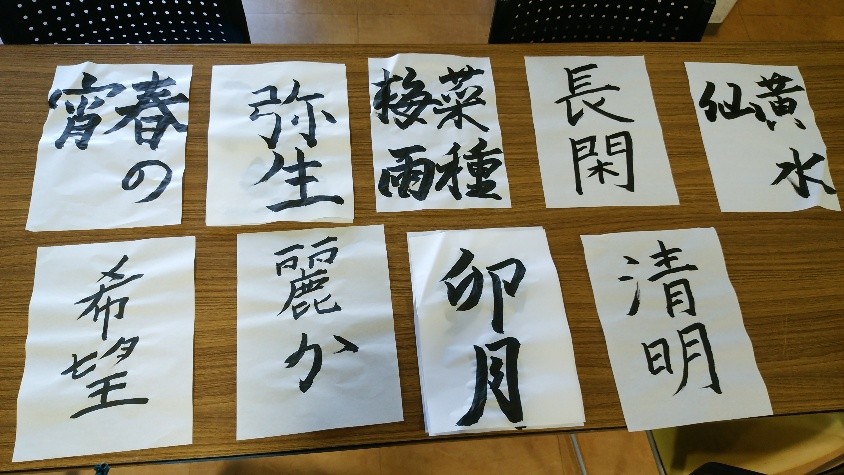 春の
宵
弥生
菜種
梅雨
長閑
黄水
仙
希望
麗か
卯月
清明